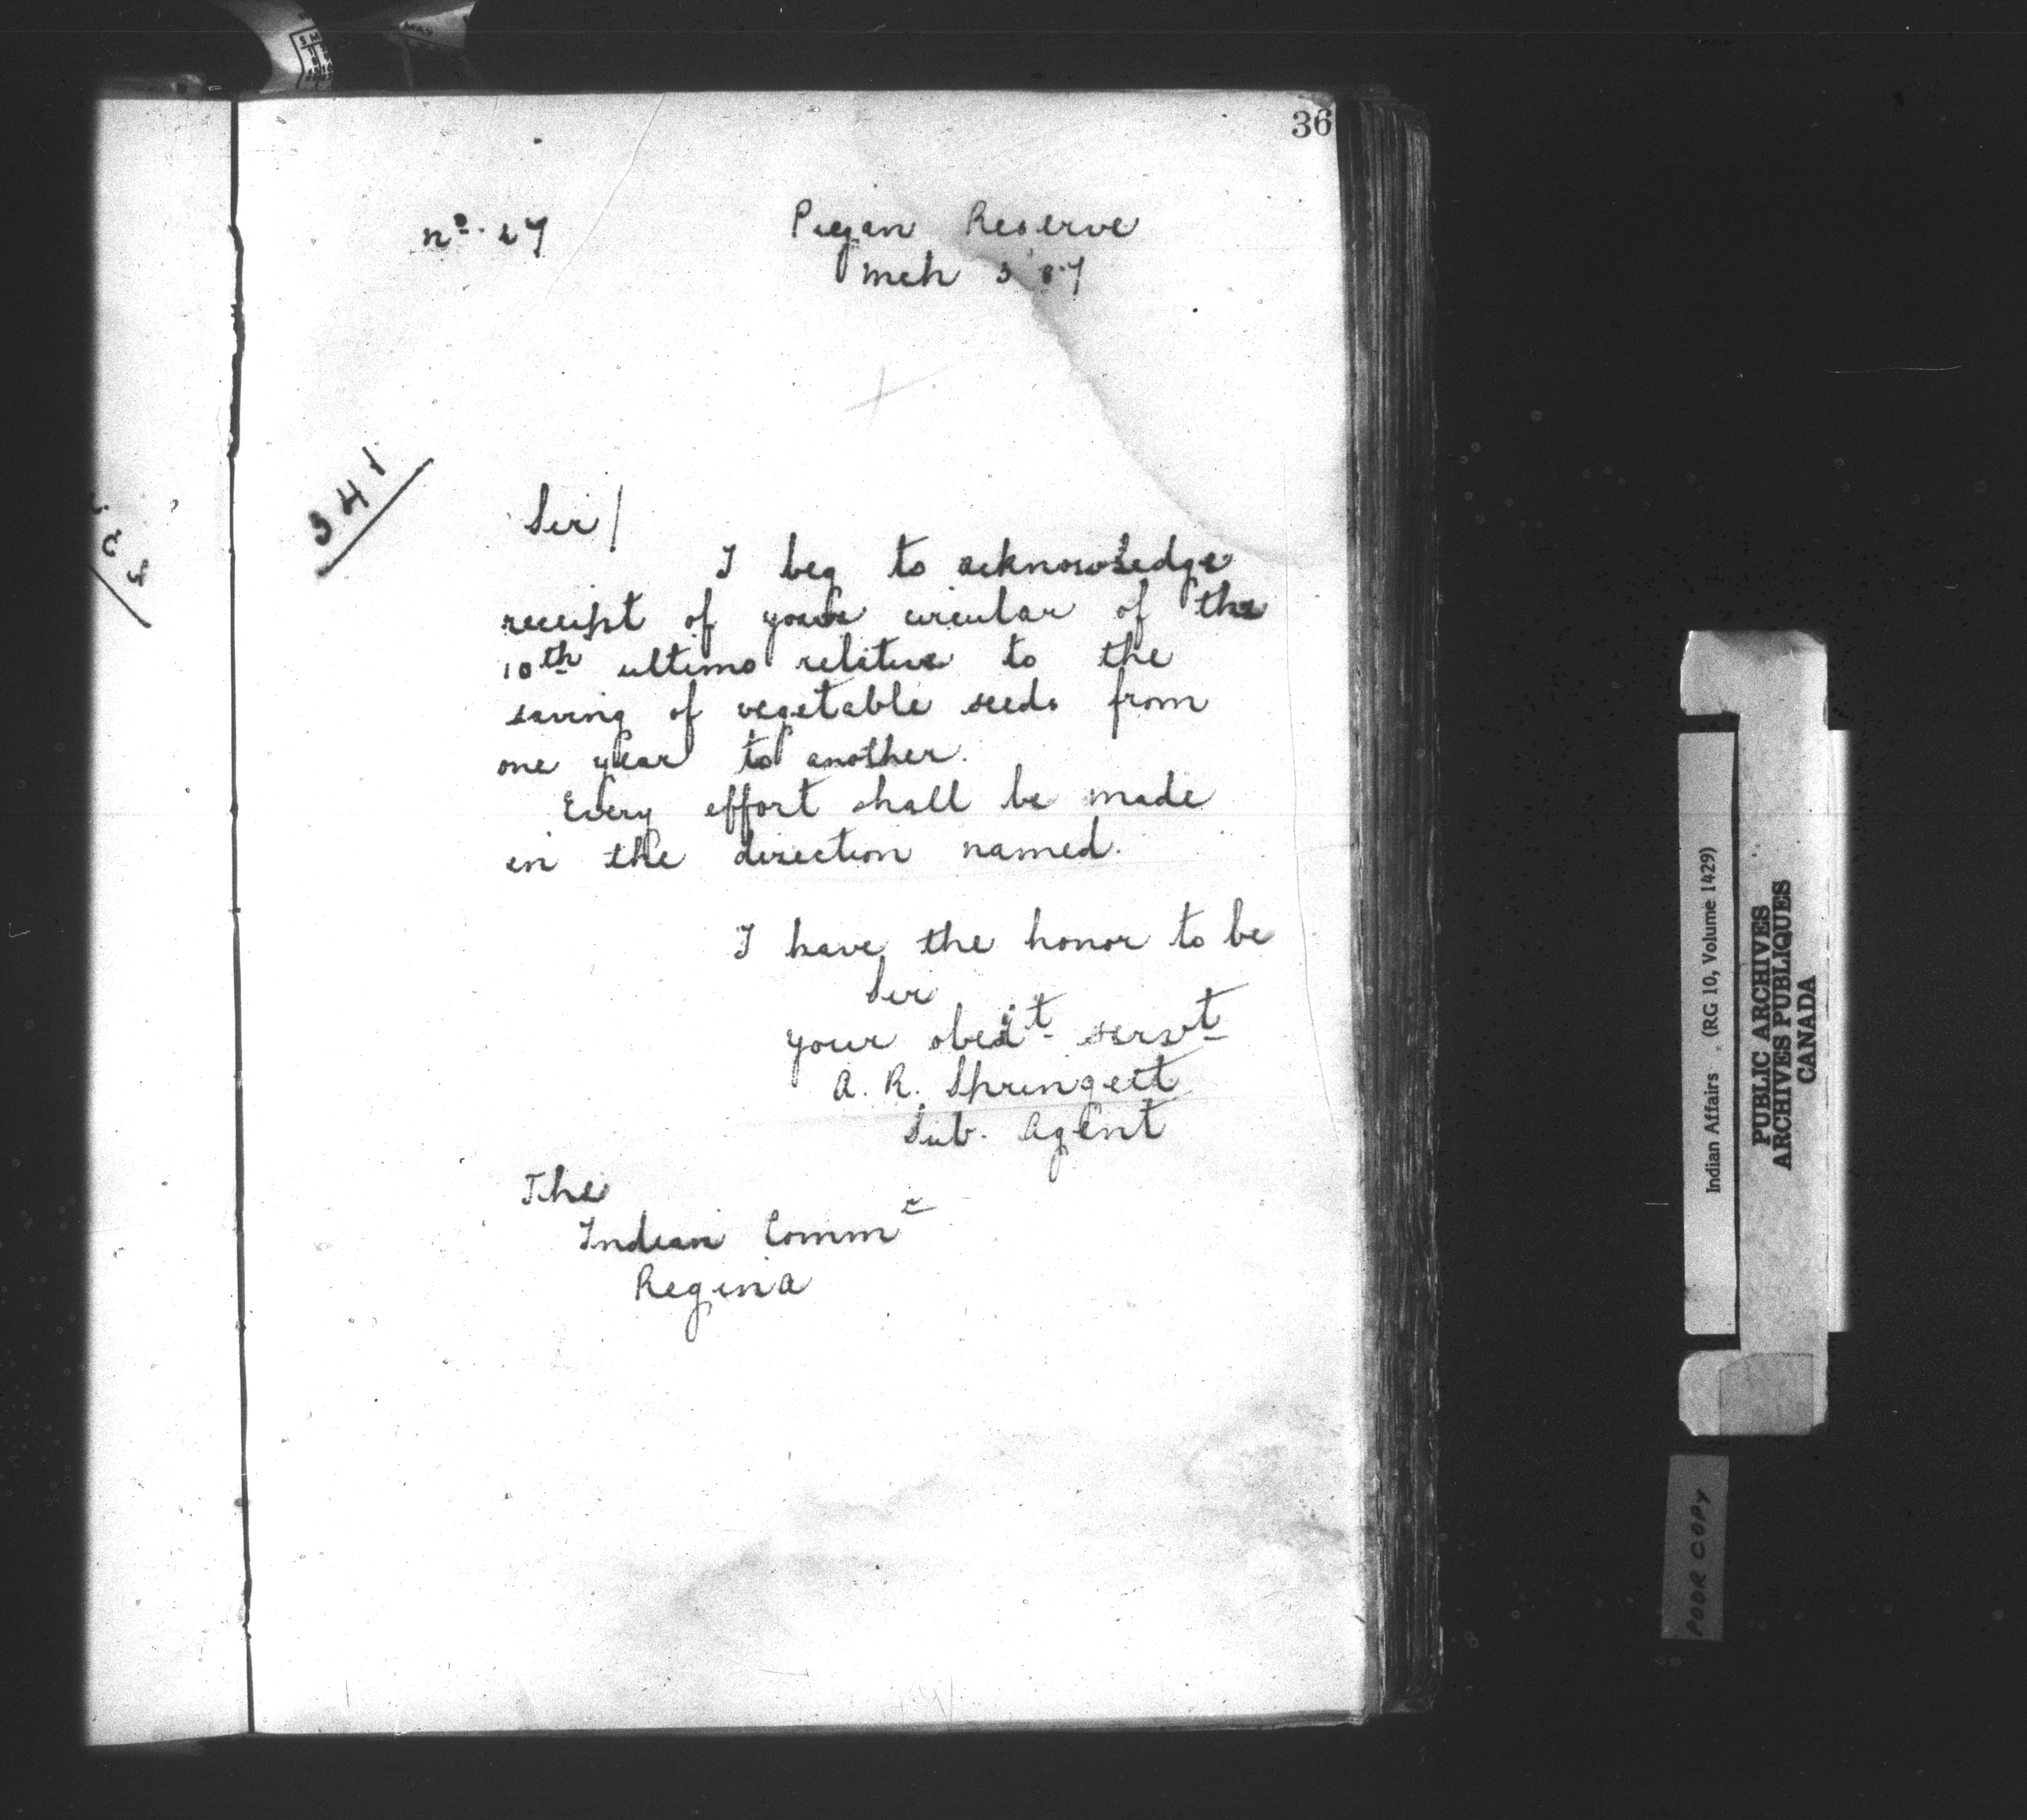 36
No. 27
Piegan Reserve
Mch 3 '87
341
Sir/
I beg to acknowledge
receipt of your circular of the
10th ultimo relative to the
saving of vegetable seeds from
one year to another.
Every effort shall be made
in the direction named.
I have the honor to be
Sir
your obedt servt
A. R. Springett
Sub. Agent
The
Indian Commr
Regina
Indian Affairs . (RG 10, Volume 1429)
PUBLIC ARCHIVES
ARCHIVES PUBLIQUES
CANADA
POOR COPY